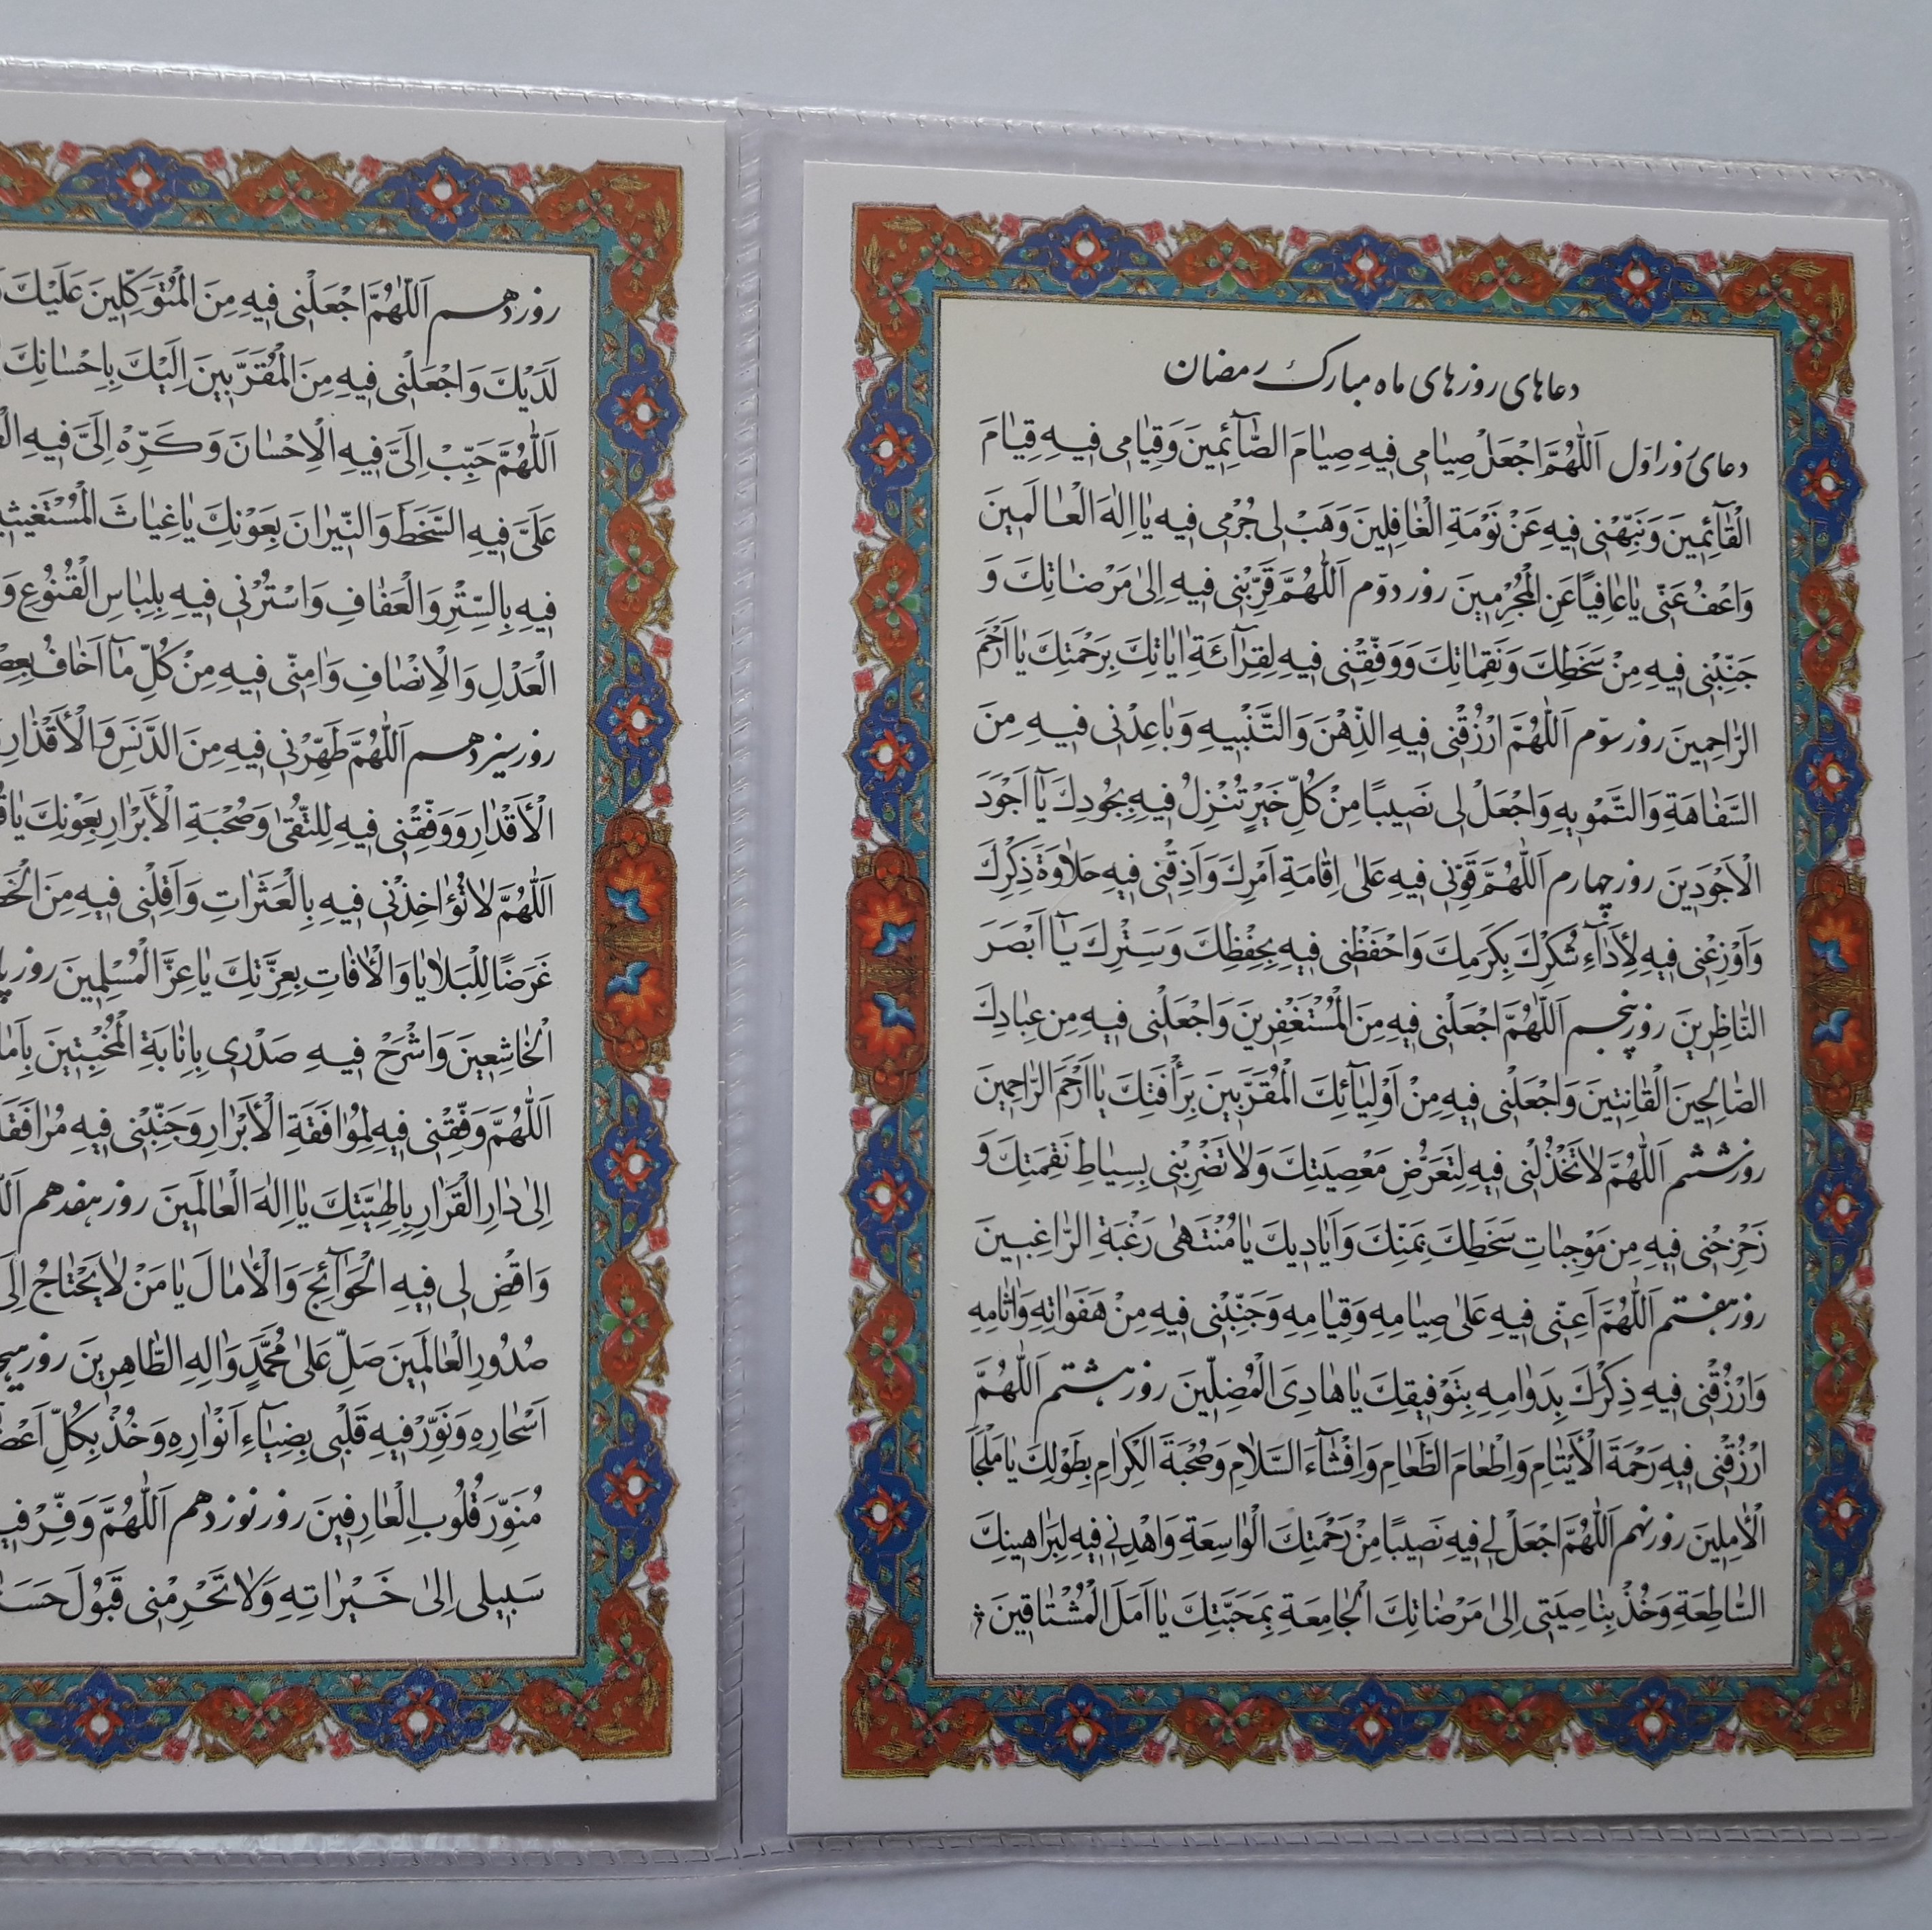 دعاهای روزهای ماه مبارک رمضان
دعای روز اوّل اَللّٰهُمَّ اجْعَلْ صِیٰامی فیهِ صِیٰامَ الصّٰآئِمینَ وَقِیٰامی فیهِ قِیٰامَ
الْقٰآئِمینَ وَنَبِّهْنی فیهِ عَنْ نَوْمَةِ الْغٰافِلینَ وَهَبْ لی جُرْمی فیهِ یٰا اِلٰهَ الْعٰالَمینَ
وَاعْفُ عَنّی یٰا عٰافِیًا عَنِ الْمُجْرِمینَ روز دوّم اَللّٰهُمَّ قَرِّبْنی فیهِ اِلیٰ مَرْضٰاتِکَ وَ
جَنِّبْنی فیهِ مِنْ سَخَطِکَ وَنَقِمٰاتِکَ وَوَفِّقْنی فیهِ لِقِرٰآئَةِ اٰیٰاتِکَ بِرَحْمَتِکَ یٰا اَرْحَمَ
الرّٰاحِمینَ روز سوّم اَللّٰهُمَّ ارْزُقْنی فیهِ الذِّهْنَ وَالتَّنْبیهَ وَبٰاعِدْنی فیهِ مِنَ
السَّفٰاهَةِ وَالتَّمْویهِ وَاجْعَلْ لی نَصیبًا مِنْ کُلِّ خَیْرٍ تُنْزِلُ فیهِ بِجُودِکَ یٰآ اَجْوَدَ
الْاَجْوَدینَ روز چهارم اَللّٰهُمَّ قَوِّنی فیهِ عَلیٰ اِقٰامَةِ اَمْرِکَ وَاَذِقْنی فیهِ حَلٰاوَةَ ذِکْرِکَ
وَاَوْزِعْنی فیهِ لِأَدٰآءِ شُکْرِکَ بِکَرَمِکَ وَاحْفَظْنی فیهِ بِحِفْظِکَ وَسَتْرِکَ یٰآ اَبْصَرَ
النّٰاظِرینَ روز پنجم اَللّٰهُمَّ اجْعَلْنی فیهِ مِنَ الْمُسْتَغْفِرینَ وَاجْعَلْنی فیهِ مِن عِبٰادِکَ
الصّٰالِحینَ الْقٰانِتینَ وَاجْعَلْنی فیهِ مِنْ اَوْلِیٰآئِکَ الْمُقَرَّبینَ بِرَأْفَتِکَ یٰا اَرْحَمَ الرّٰاحِمینَ
روز ششم اَللّٰهُمَّ لٰا تَخْذُلْنی فیهِ لِتَعَرُّضِ مَعْصِیَتِکَ وَلٰا تَضْرِبْنی بِسِیٰاطِ نَقِمَتِکَ وَ
زَحْزِحْنی فیهِ مِن مَوْجِبٰاتِ سَخَطِکَ بِمَنِّکَ وَاَیٰادیکَ یٰا مُنْتَهیٰ رَغْبَةِ الرّٰاغِبینَ
روز هفتم اَللّٰهُمَّ اَعِنّی فیهِ عَلیٰ صِیٰامِهِ وَقِیٰامِهِ وَجَنِّبْنی فیهِ مِنْ هَفَوٰاتِهِ وَاٰثٰامِهِ
وَارْزُقْنی فیهِ ذِکْرَکَ بِدَوٰامِهِ بِتَوْفیقِکَ یٰا هٰادِیَ الْمُضِلّینَ روز هشتم اَللّٰهُمَّ
ارْزُقْنی فیهِ رَحْمَةَ الْأَیْتٰامِ وَاِطْعٰامَ الطَّعٰامِ وَاِفْشٰآءَ السَّلٰامِ وَصُحْبَةَ الْکِرٰامِ بِطَوْلِکَ یٰا مَلْجَأَ
الْاٰمِلینَ روز نهم اَللّٰهُمَّ اجْعَلْ لی فیهِ نَصیبًا مِنْ رَحْمَتِکَ الْوٰاسِعَةِ وَاهْدِنی فیهِ لِبَرٰاهینِکَ
السّٰاطِعَةِ وَخُذْ بِنٰاصِیَتی اِلیٰ مَرْضٰاتِکَ الْجٰامِعَةِ بِمَحَبَّتِکَ یٰا اَمَلَ الْمُشْتٰاقینَ
روز دهم اَللّٰهُمَّ اجْعَلْنی فیهِ مِنَ الْمُتَوَکِّلینَ عَلَیْکَ
لَدَیْکَ وَاجْعَلْنی فیهِ مِنَ الْمُقَرَّبینَ اِلَیْکَ بِاِحْسٰانِکَ
اَللّٰهُمَّ حَبِّبْ اِلَیَّ فیهِ الْاِحْسٰانَ وَکَرِّهْ اِلَیَّ فیهِ
عَلَیَّ فیهِ السَّخَطَ وَالنّیرٰانَ بِعَوْنِکَ یٰا غِیٰاثَ
فیهِ بِالسِّتْرِ وَالْعَفٰافِ وَاسْتُرْنی فیهِ بِلِبٰاسِ الْقُنُوعِ وَ
الْعَدْلِ وَالْاِنْصٰافِ وَاٰمِنّی فیهِ مِنْ کُلِّ مٰآ اَخٰافُ
روز سیزدهم اَللّٰهُمَّ طَهِّرْنی فیهِ مِنَ الدَّنَسِ وَالْأَقْذٰارِ
الْأَقْدٰارِ وَوَفِّقْنی فیهِ لِلتُّقیٰ وَصُحْبَةِ الْأَبْرٰارِ بِعَوْنِکَ یٰا
اَللّٰهُمَّ لٰا تُؤٰاخِذْنی فیهِ بِالْعَثَرٰاتِ وَاَقِلْنی فیهِ مِنَ
غَرَضًا لِلْبَلٰایٰا وَالْاٰفٰاتِ بِعِزَّتِکَ یٰا عِزَّ الْمُسْلِمینَ روز
الْخٰاشِعینَ وَاشْرَحْ فیهِ صَدْری بِاِنٰابَةِ الْمُخْبِتینَ
اَللّٰهُمَّ وَفِّقْنی فیهِ لِمُوٰافَقَةِ الْأَبْرٰارِ وَجَنِّبْنی فیهِ
اِلیٰ دٰارِ الْقَرٰارِ بِاِلٰهِیَّتِکَ یٰا اِلٰهَ الْعٰالَمینَ روز هفدهم
وَاقْضِ لی فیهِ الْحَوٰآئِجَ وَالْاٰمٰالَ یٰا مَنْ لٰا یَحْتٰاجُ اِلَی
صُدُورِ الْعٰالَمینَ صَلِّ عَلیٰ مُحَمَّدٍ وَاٰلِهِ الطّٰاهِرینَ روز
اَسْحٰارِهِ وَنَوِّرْ فیهِ قَلْبی بِضِیٰآءِ اَنْوٰارِهِ وَخُذْ بِکُلِّ
مُنَوِّرَ قُلُوبِ الْعٰارِفینَ روز نوزدهم اَللّٰهُمَّ وَفِّرْ
سَبیلی اِلیٰ خَیْرٰاتِهِ وَلٰا تَحْرِمْنی قَبُولَ